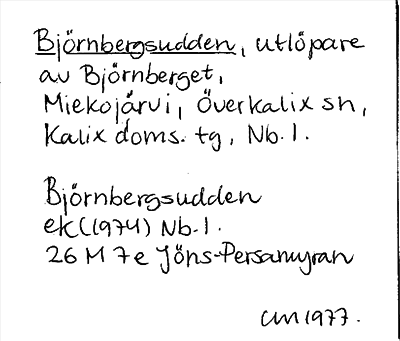 Björnbergsudden, utlöpare
av Björnberget,
Miekojärvi, Överkalix sn,
Kalix doms. tg, Nb. l.
Björnbergsudden
ek (1974) Nb. l.
26 M 7e Jöns-Persamyran
1977.